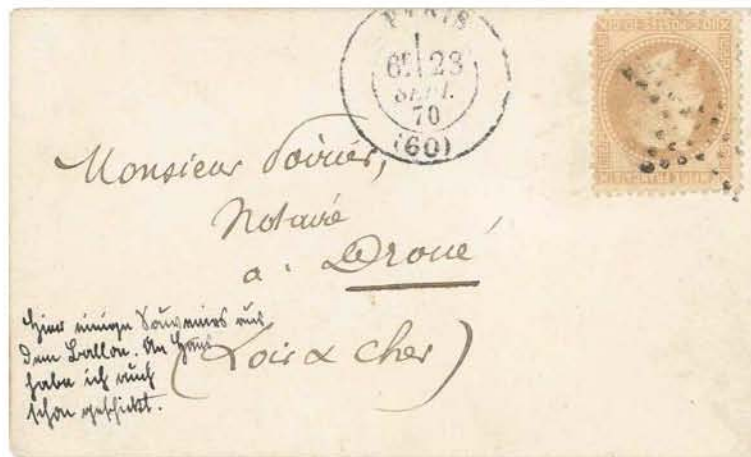 PARIS
6E 23
SEPT.
70
(60)
Monsieur Poirier,
Notaire
a. Droué
(Loir & Cher)
Hier einige Souvenirs aus
dem Ballon. An Hans
habe ich auch
schon geschickt.